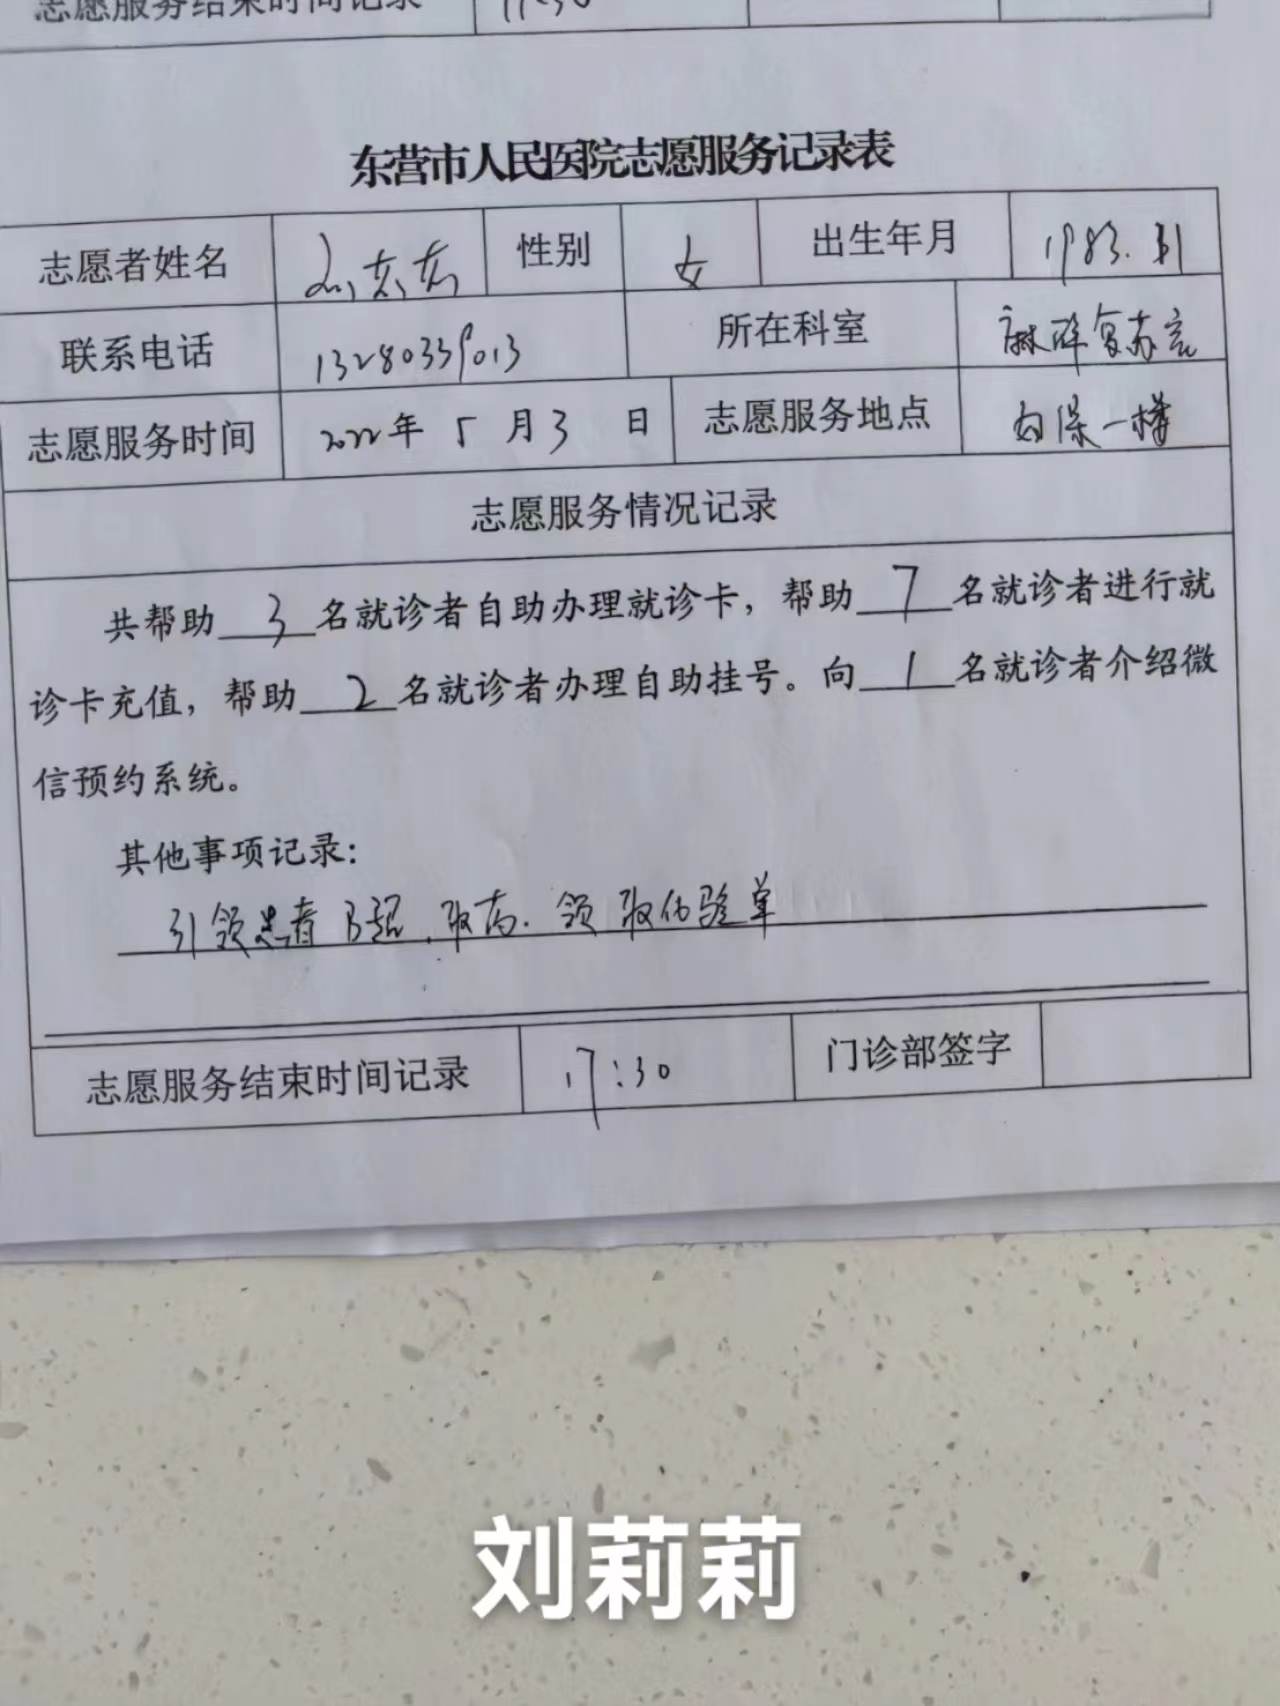 志愿服务结束时间记录 17:30
东营市人民医院志愿服务记录表
志愿者姓名 刘莉莉 性别 女 出生年月 1983.
联系电话 13280339013 所在科室 麻醉复苏室
志愿服务时间 2022年 5 月 3 日 志愿服务地点 内保一楼
志愿服务情况记录
共帮助 3 名就诊者自助办理就诊卡，帮助 7 名就诊者进行就
诊卡充值，帮助 2 名就诊者办理自助挂号。向 1 名就诊者介绍微
信预约系统。
其他事项记录：
引领患者B超、取药、领取化验单
志愿服务结束时间记录 17:30 门诊部签字
刘莉莉